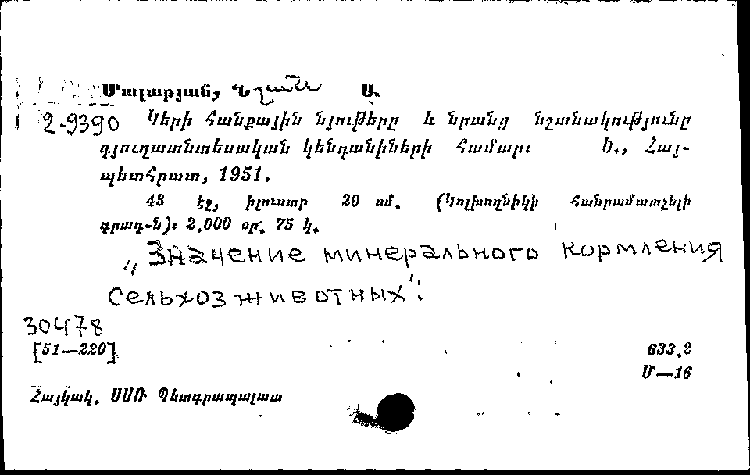 Մալաթյան, Նշան Ա.
2-9390 Կերի հանքային նյութերը և նրանց նշանակությունը
գյուղատնտեսական կենդանիների համար։ Ե., Հայ-
պետհրատ, 1951.
43 էջ, իլյուստր 20 սմ. (Կոլխոզնիկի հանրամատչելի
գրադ-ն)։ 2,000 օր. 75 կ.
„Значение минерального кормления
сельхоз животных":
30478
[51—220]
633.2
Մ—16
Հայկակ. ՍՍՌ Պետգրապալատ